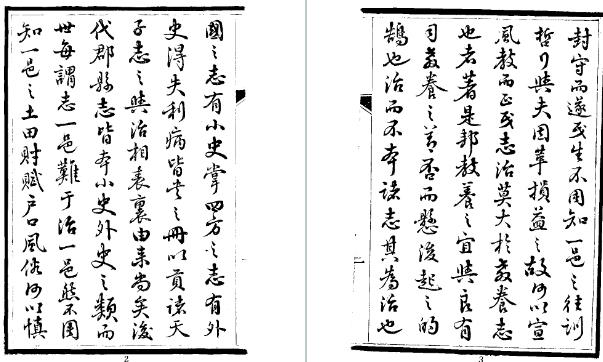 國之志有小史掌四方之志有外
史得失利病皆書之冊以貢諸天
子志之與治相表裏由来尚矣後
代郡縣志皆本小史外史之類而
世每謂志一邑難于治一邑然不周
知一邑之土田財賦户口風俗何以慎
2
封守而遂民生不周知一邑之往訓
哲行與夫因革損益之故何以宣
風教而正民志治莫大於教養志
也者著是邦教養之宜與良有
司教養之善否而懸後起之的
鵠也治而不本諸志其為治也
3